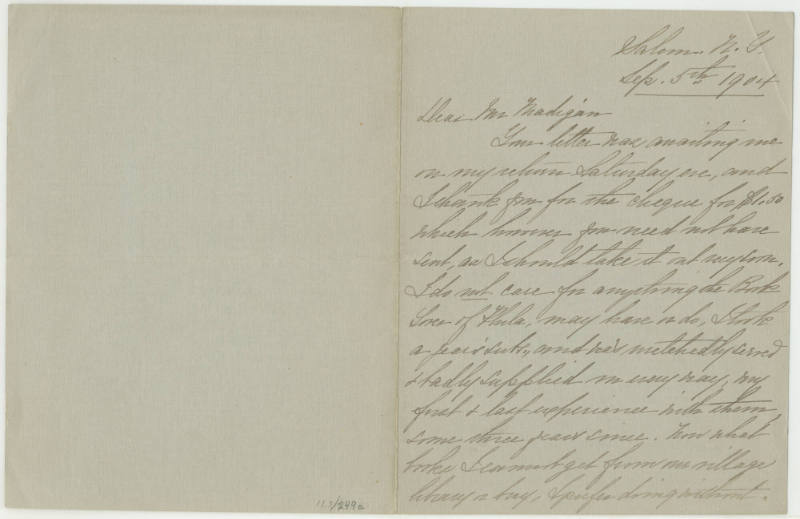 Salem. N. Y.
Sep. 5th 1904
Dear Mr Madigan
Your letter was awaiting me
on my return Saturday eve, and
I thank you for the cheque for $1.50
which however you need not have
sent, as I should take it out
I do not care for anything the Book
Lover of Phila, may have or do, I took
a year's subs., and was wretchedly served
& badly supplied in every way, my
first & last experience with them
some three years since. Now what
books I cannot get from our village
library or buy, I prefer doing without.
11.7/249a